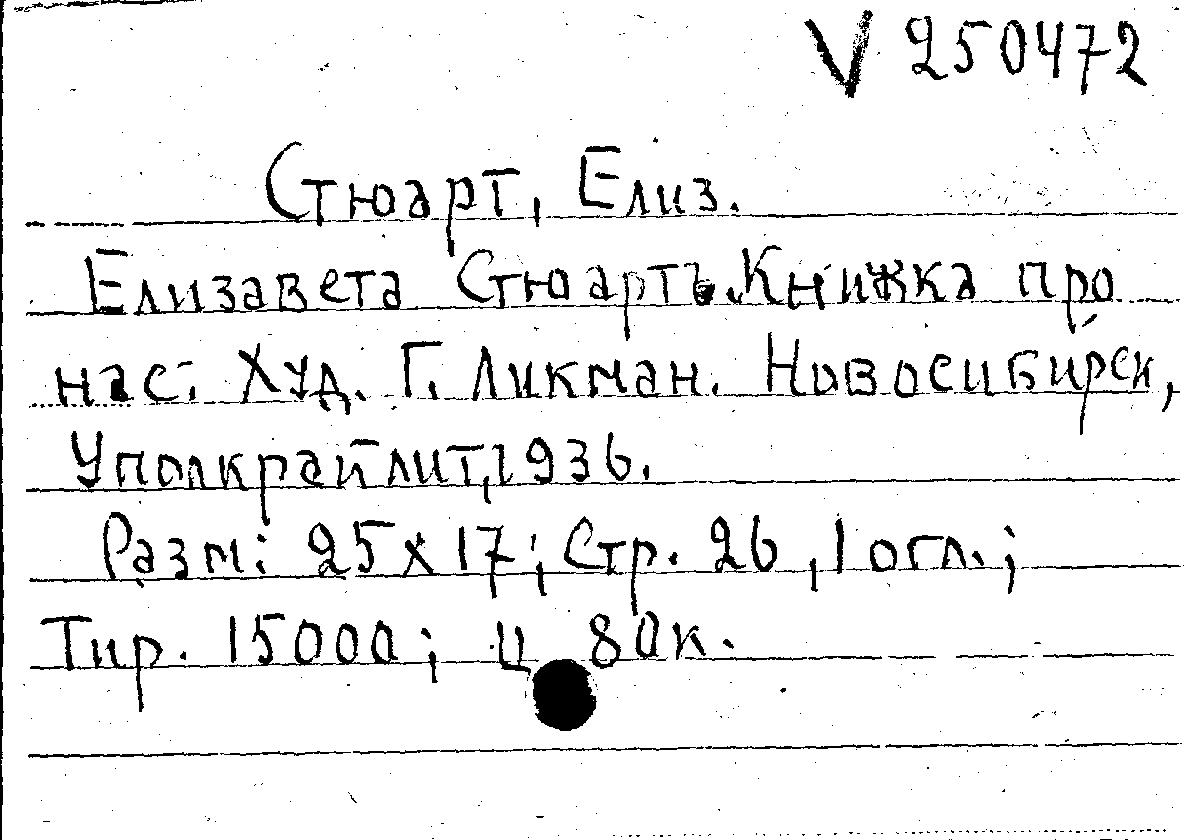 V 250472
Стюарт, Елиз.
Елизавета Стюартъ. Книжка про
нас. Худ. Г. Ликман. Новосибирск,
Уполкрайлит, 1936.
Разм: 25 x 17; Стр. 26, 1 огл.;
Тир. 15000; ц 80к.